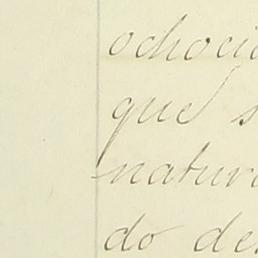 ochoci
que s
natura
do de